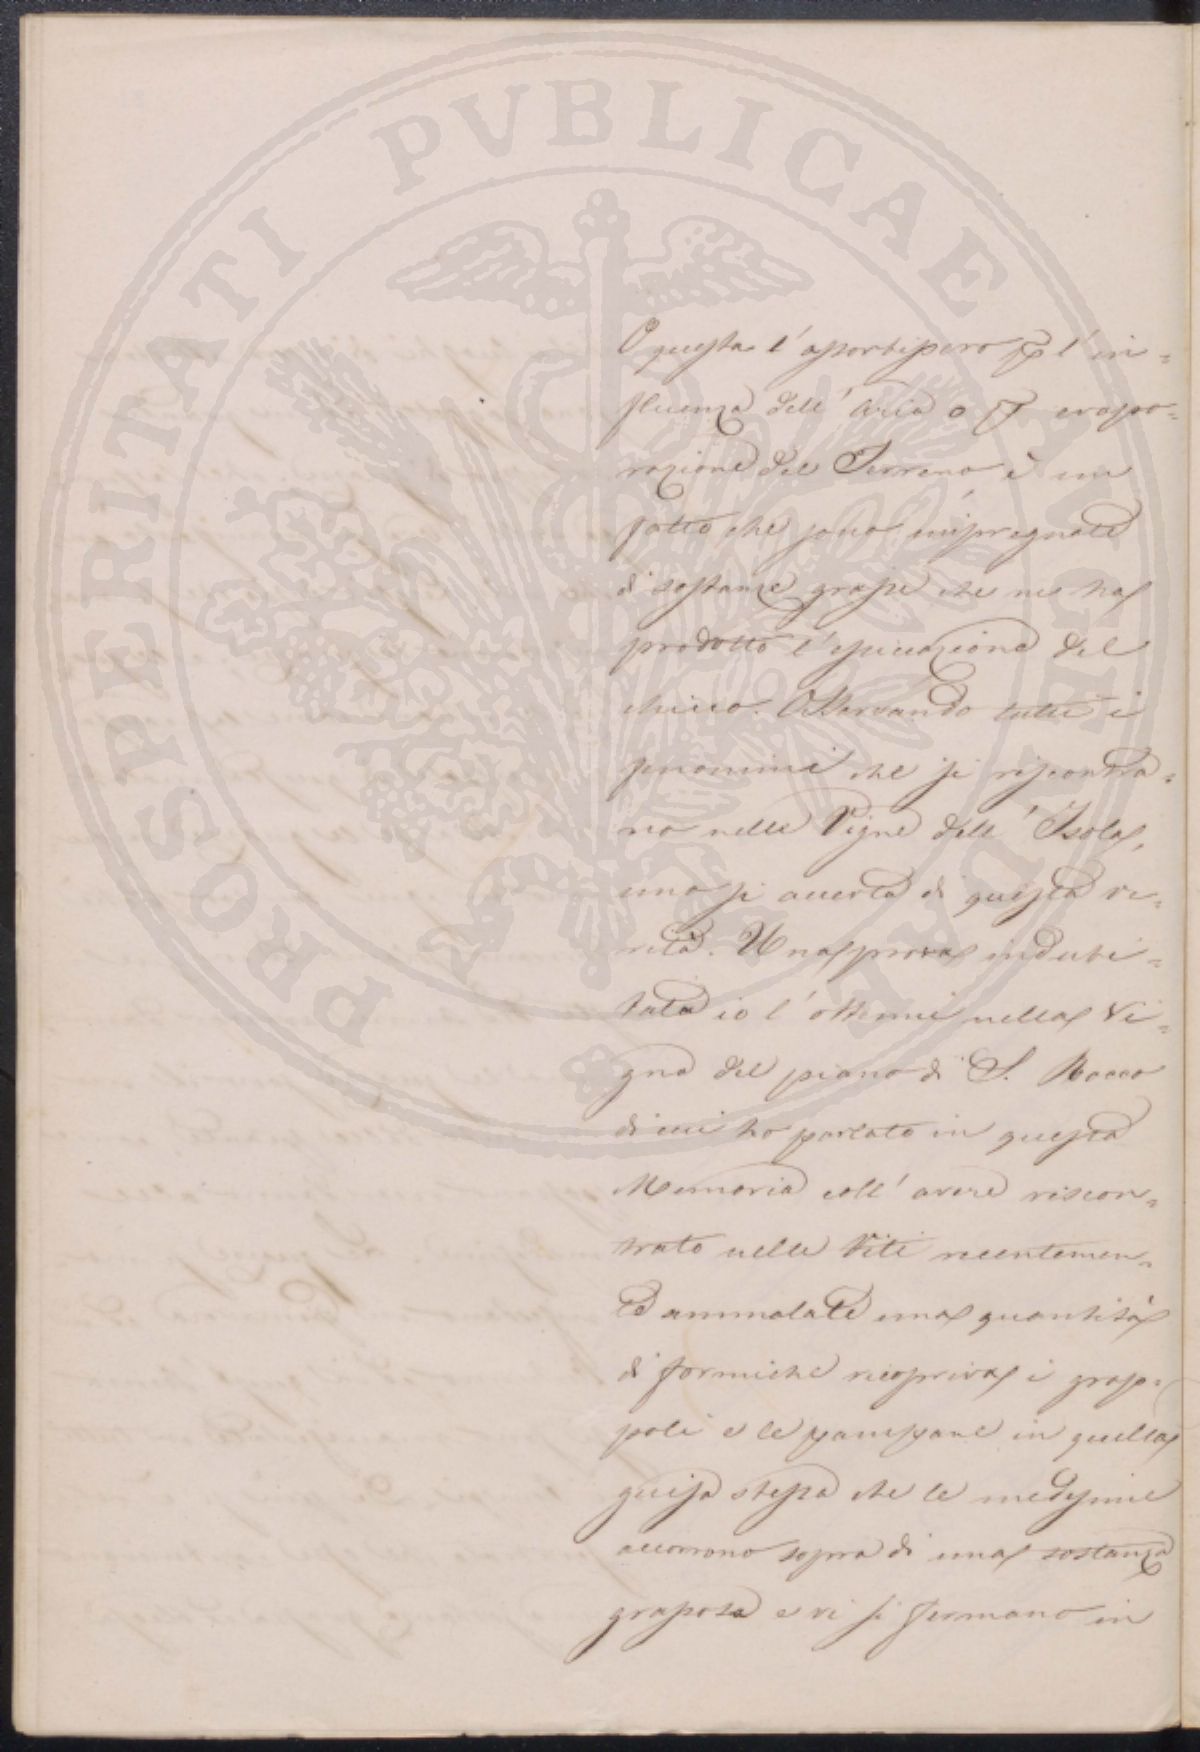 PROSPERITATI PVBLICAE AVGENDAE
O questa l'assorbissero p l'in=
fluenza dell'Aria o p evapo=
razione del Terreno è un
fatto che sono impregnate
di sostanze grasse che ne ha
prodotto l'essiccazione del
chicco. Osservando tutti i
fenomini che si riscontra=
no nelle Vigne dell'Isola,
uno si accerta di questa ve=
rità. Una prova indubi=
tata io l'ottenni nella Vi=
gna del piano di S. Rocco
di cui ho parlato in questa
Memoria coll'avere riscon=
trato nelle Viti recentemen=
te ammalate una quantità
di formiche ricopriva i grap=
poli e le pampane in quella
guisa stessa che le medesime
accorrono sopra di una sostanza
grassosa e vi si fermano in